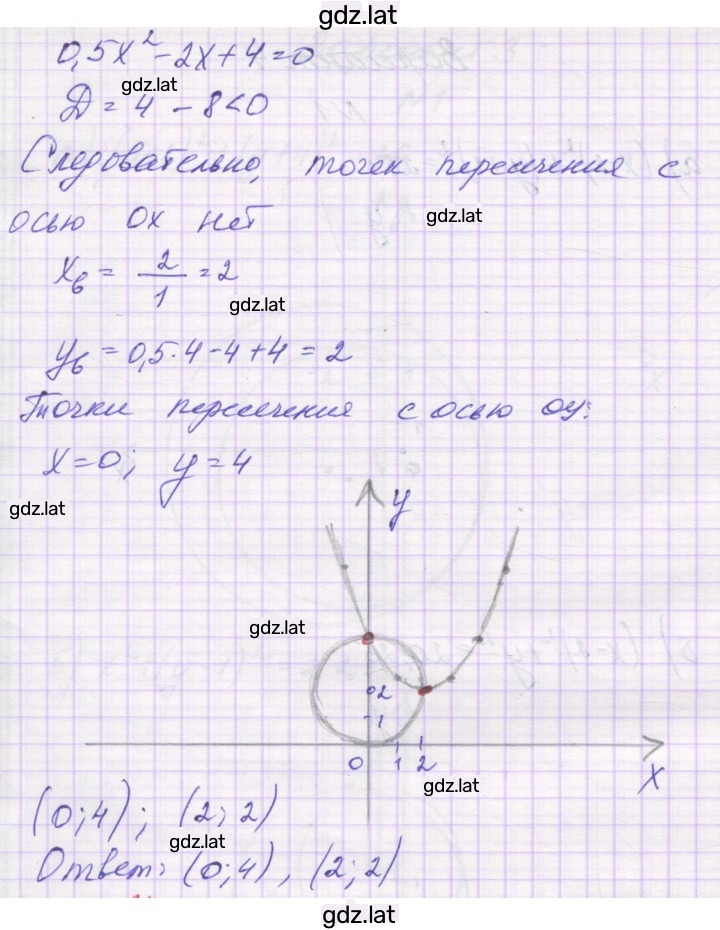 gdz.lat
0,5x² - 2x + 4 = 0
gdz.lat
D = 4 - 8 < 0
Следовательно, точек пересечения с
осью Ox нет
gdz.lat
xв = 2/1 = 2
gdz.lat
yв = 0,5·4 - 4 + 4 = 2
Точки пересечения с осью Oy:
x = 0; y = 4
gdz.lat
y
gdz.lat
2
1
0 1 2
x
gdz.lat
(0;4); (2;2)
gdz.lat
Ответ: (0;4), (2;2)
gdz.lat